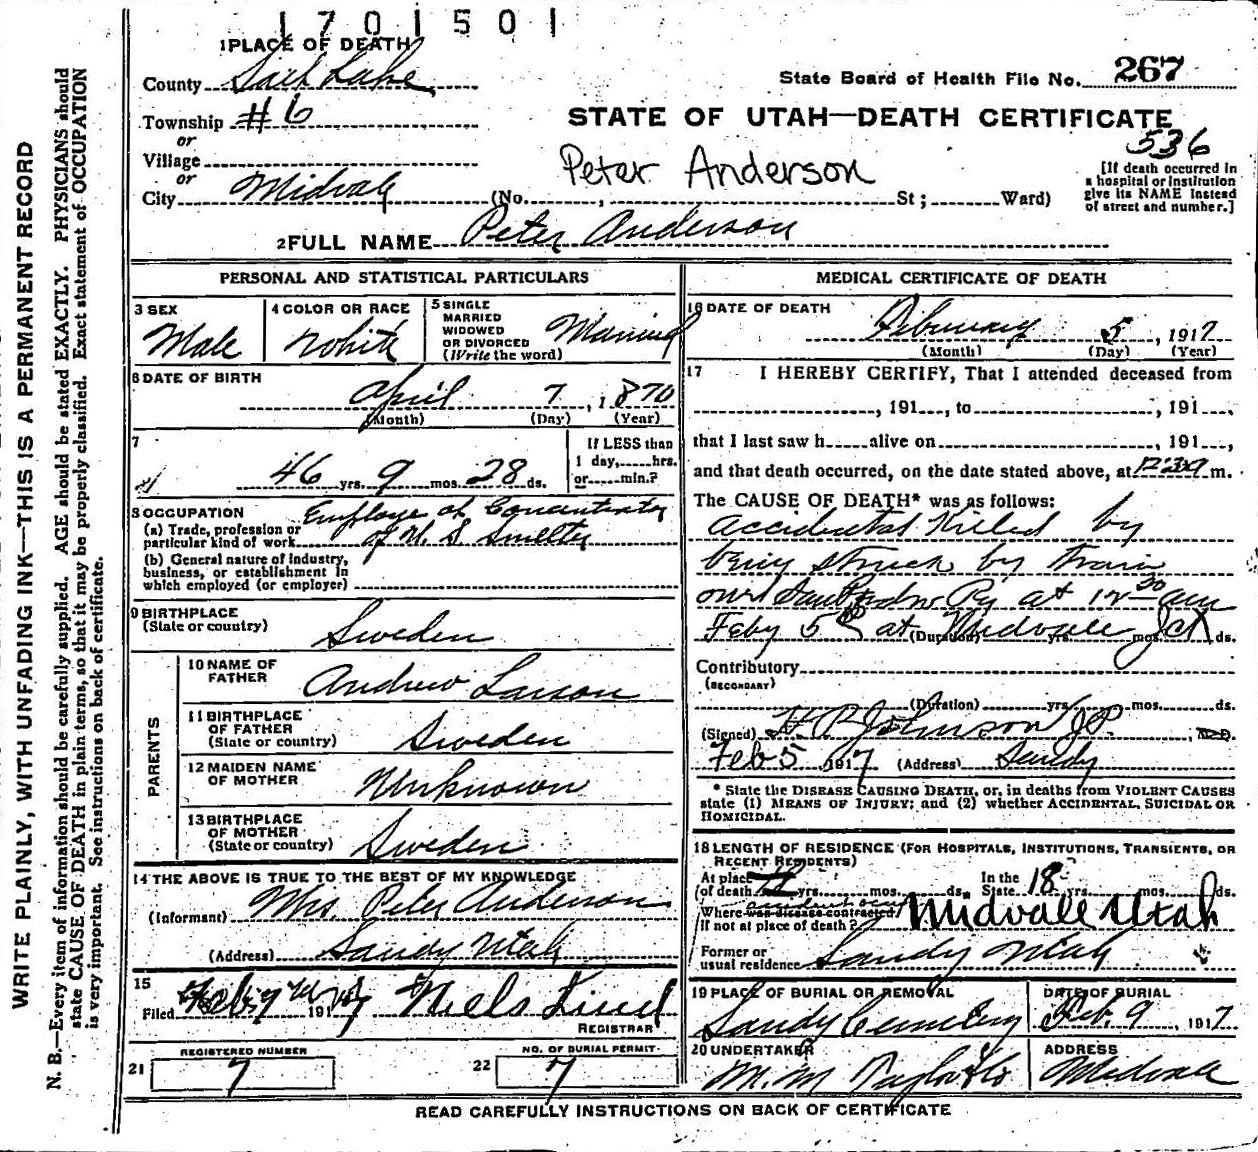 1701501
1 PLACE OF DEATH
County Salt Lake
State Board of Health File No. 267
Township #6
STATE OF UTAH—DEATH CERTIFICATE
or
536
Village
Peter Anderson
[If death occurred in
a hospital or institution
give its NAME instead
of street and number.]
or
City Midvale (No. , St; Ward)
2 FULL NAME Peter Anderson
PERSONAL AND STATISTICAL PARTICULARS
3 SEX
Male
4 COLOR OR RACE
White
5 SINGLE
MARRIED
WIDOWED
OR DIVORCED
(Write the word)
Married
6 DATE OF BIRTH
April 7, 1870
(Month) (Day) (Year)
7
46 yrs. 9 mos. 28 ds.
If LESS than
1 day, hrs.
or min.?
8 OCCUPATION
(a) Trade, profession or
particular kind of work
Employe at
of U. S. Smelter
(b) General nature of industry,
business, or establishment in
which employed (or employer)
9 BIRTHPLACE
(State or country)
Sweden
PARENTS
10 NAME OF
FATHER
Andrew Larson
11 BIRTHPLACE
OF FATHER
(State or country)
Sweden
12 MAIDEN NAME
OF MOTHER
Unknown
13 BIRTHPLACE
OF MOTHER
(State or country)
Sweden
14 THE ABOVE IS TRUE TO THE BEST OF MY KNOWLEDGE
(Informant) Mrs Peter Anderson
(Address) Sandy Utah
15
Filed Feb 9 1917 Niels Lind
REGISTRAR
21 REGISTERED NUMBER
7
22 NO. OF BURIAL PERMIT
7
MEDICAL CERTIFICATE OF DEATH
16 DATE OF DEATH
February 5, 1917
(Month) (Day) (Year)
17 I HEREBY CERTIFY, That I attended deceased from
, 191 , to , 191 ,
that I last saw h alive on , 191 ,
and that death occurred, on the date stated above, at m.
The CAUSE OF DEATH* was as follows:
Accidental Killed by
being struck by train
at 12 30 am
Feby 5 at Midvale
(Duration) yrs. mos. ds.
Contributory
(SECONDARY)
(Duration) yrs. mos. ds.
(Signed) H P Johnson J.P.
Feb 5 1917 (Address) Sandy
* State the DISEASE CAUSING DEATH, or, in deaths from VIOLENT CAUSES
state (1) MEANS OF INJURY; and (2) whether ACCIDENTAL, SUICIDAL OR
HOMICIDAL.
18 LENGTH OF RESIDENCE (FOR HOSPITALS, INSTITUTIONS, TRANSIENTS, OR
RECENT RESIDENTS)
At place
of death yrs. mos. ds.
In the
State 18 yrs. mos. ds.
Where was disease contracted
if not at place of death? Midvale Utah
Former or
usual residence Sandy Utah
19 PLACE OF BURIAL OR REMOVAL
Sandy Cemetery
DATE OF BURIAL
Feb. 9, 1917
20 UNDERTAKER
M. M.
ADDRESS
Midvale
READ CAREFULLY INSTRUCTIONS ON BACK OF CERTIFICATE
WRITE PLAINLY, WITH UNFADING INK—THIS IS A PERMANENT RECORD
N. B.—Every item of information should be carefully supplied. AGE should be stated EXACTLY. PHYSICIANS should
state CAUSE OF DEATH in plain terms, so that it may be properly classified. Exact statement of OCCUPATION
is very important. See instructions on back of certificate.